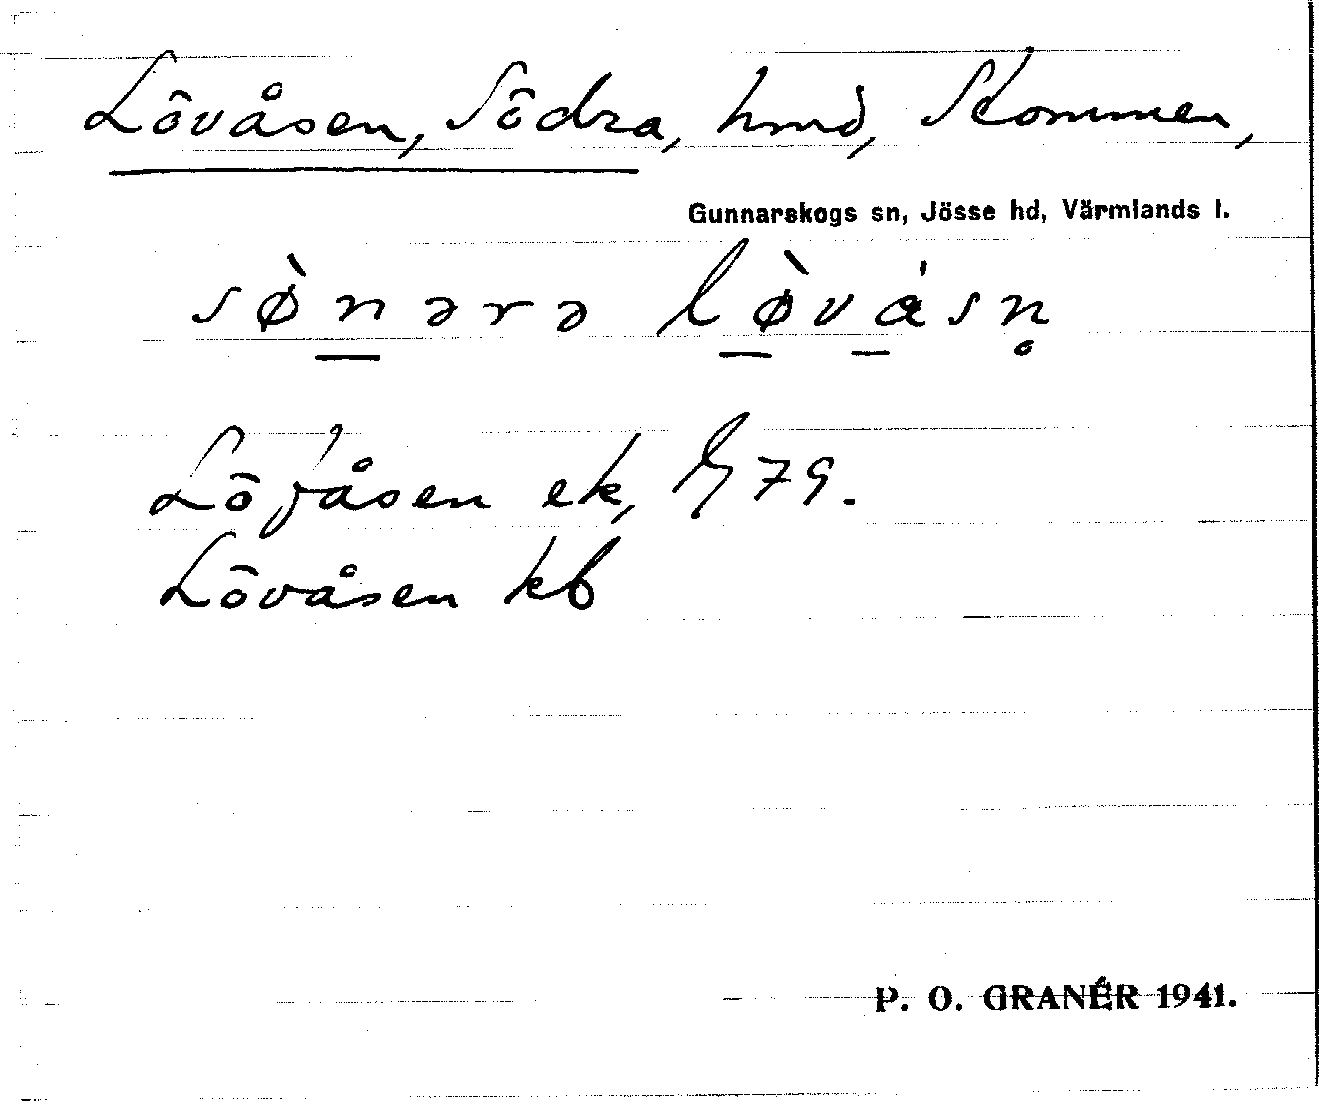 Lövåsen, Södra, hmd, Skommen,
Gunnarskogs sn, Jösse hd, Värmlands l.
sø̀nərə lø̀vásn̥
Löfåsen ek, 79.
Lövåsen kb
P. O. GRANÉR 1941.